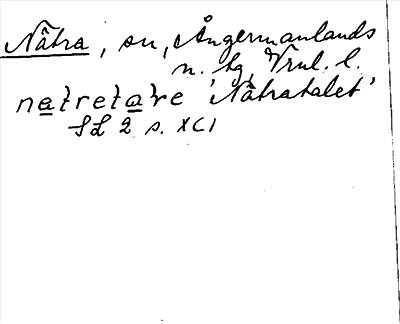 Nätra, sn, Ångermanlands
n. tg, Vrnl. l.
natretare 'Nätratalet'
SL 2 s. XCI